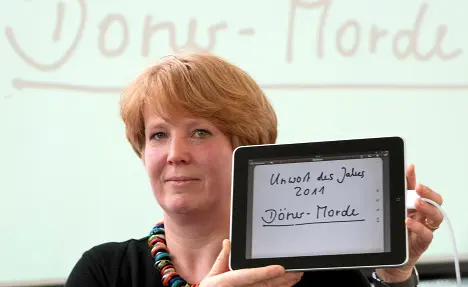 Döner-Morde
Unwort des Jahres
2011
Döner-Morde